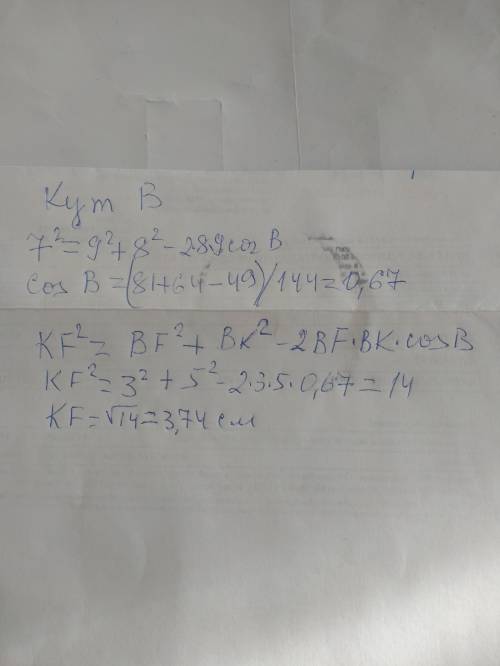 Кут В
7²=9²+8²-2·8·9cos B
cos B=(81+64-49)/144=0,67
KF²= BF²+ BK²-2BF·BK·cosB
KF²=3²+5²-2·3·5·0,67=14
KF=√14=3,74 см